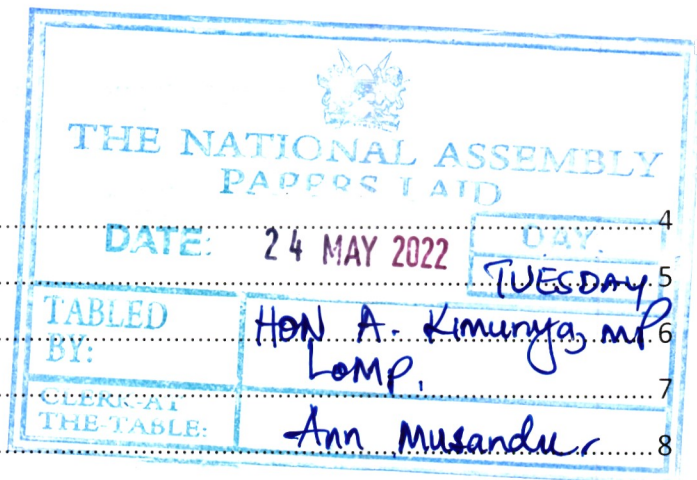 THE NATIONAL ASSEMBLY
PAPERS LAID
4
DATE: 24 MAY 2022 DAY.
TUESDAY 5
TABLED BY: HON A. Kimunya, MP 6
LOMP.
7
CLERK-AT THE-TABLE: Ann Musandu. 8